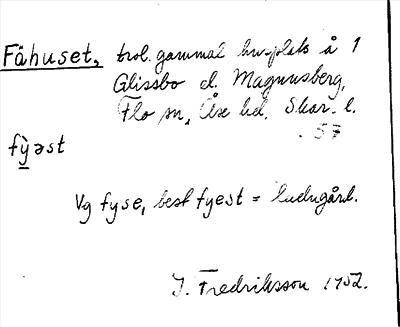 Fähuset, trol. gammal husplats å 1
Glissbo el. Magnusberg,
Flo sn, Åse hd. Skar. l.
57
fỳəst
Vg fyse, best fyest = ladugård.
J. Fredriksson 1952.